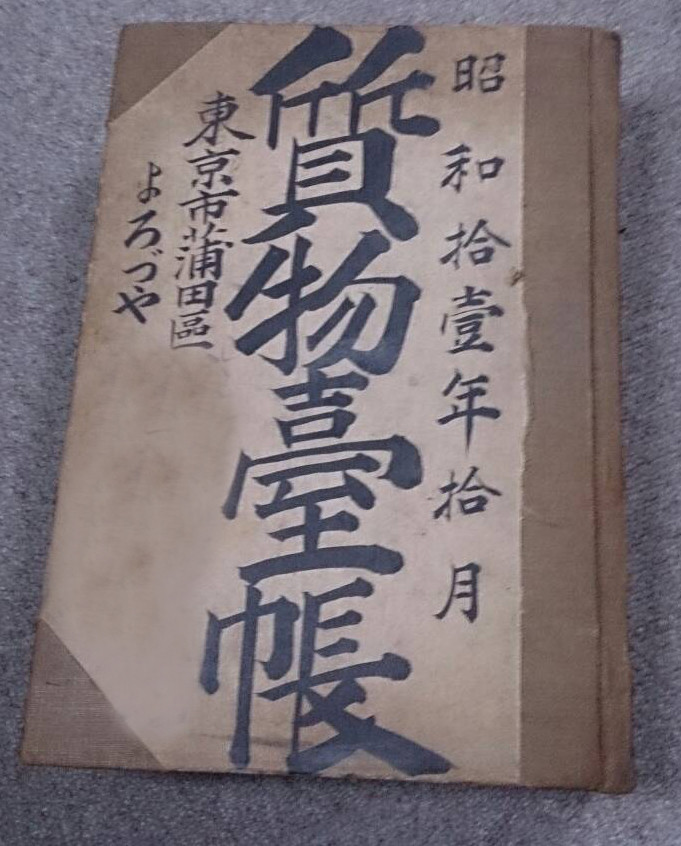 昭和拾壹年拾月
質物臺帳
東京市蒲田區
よろづや